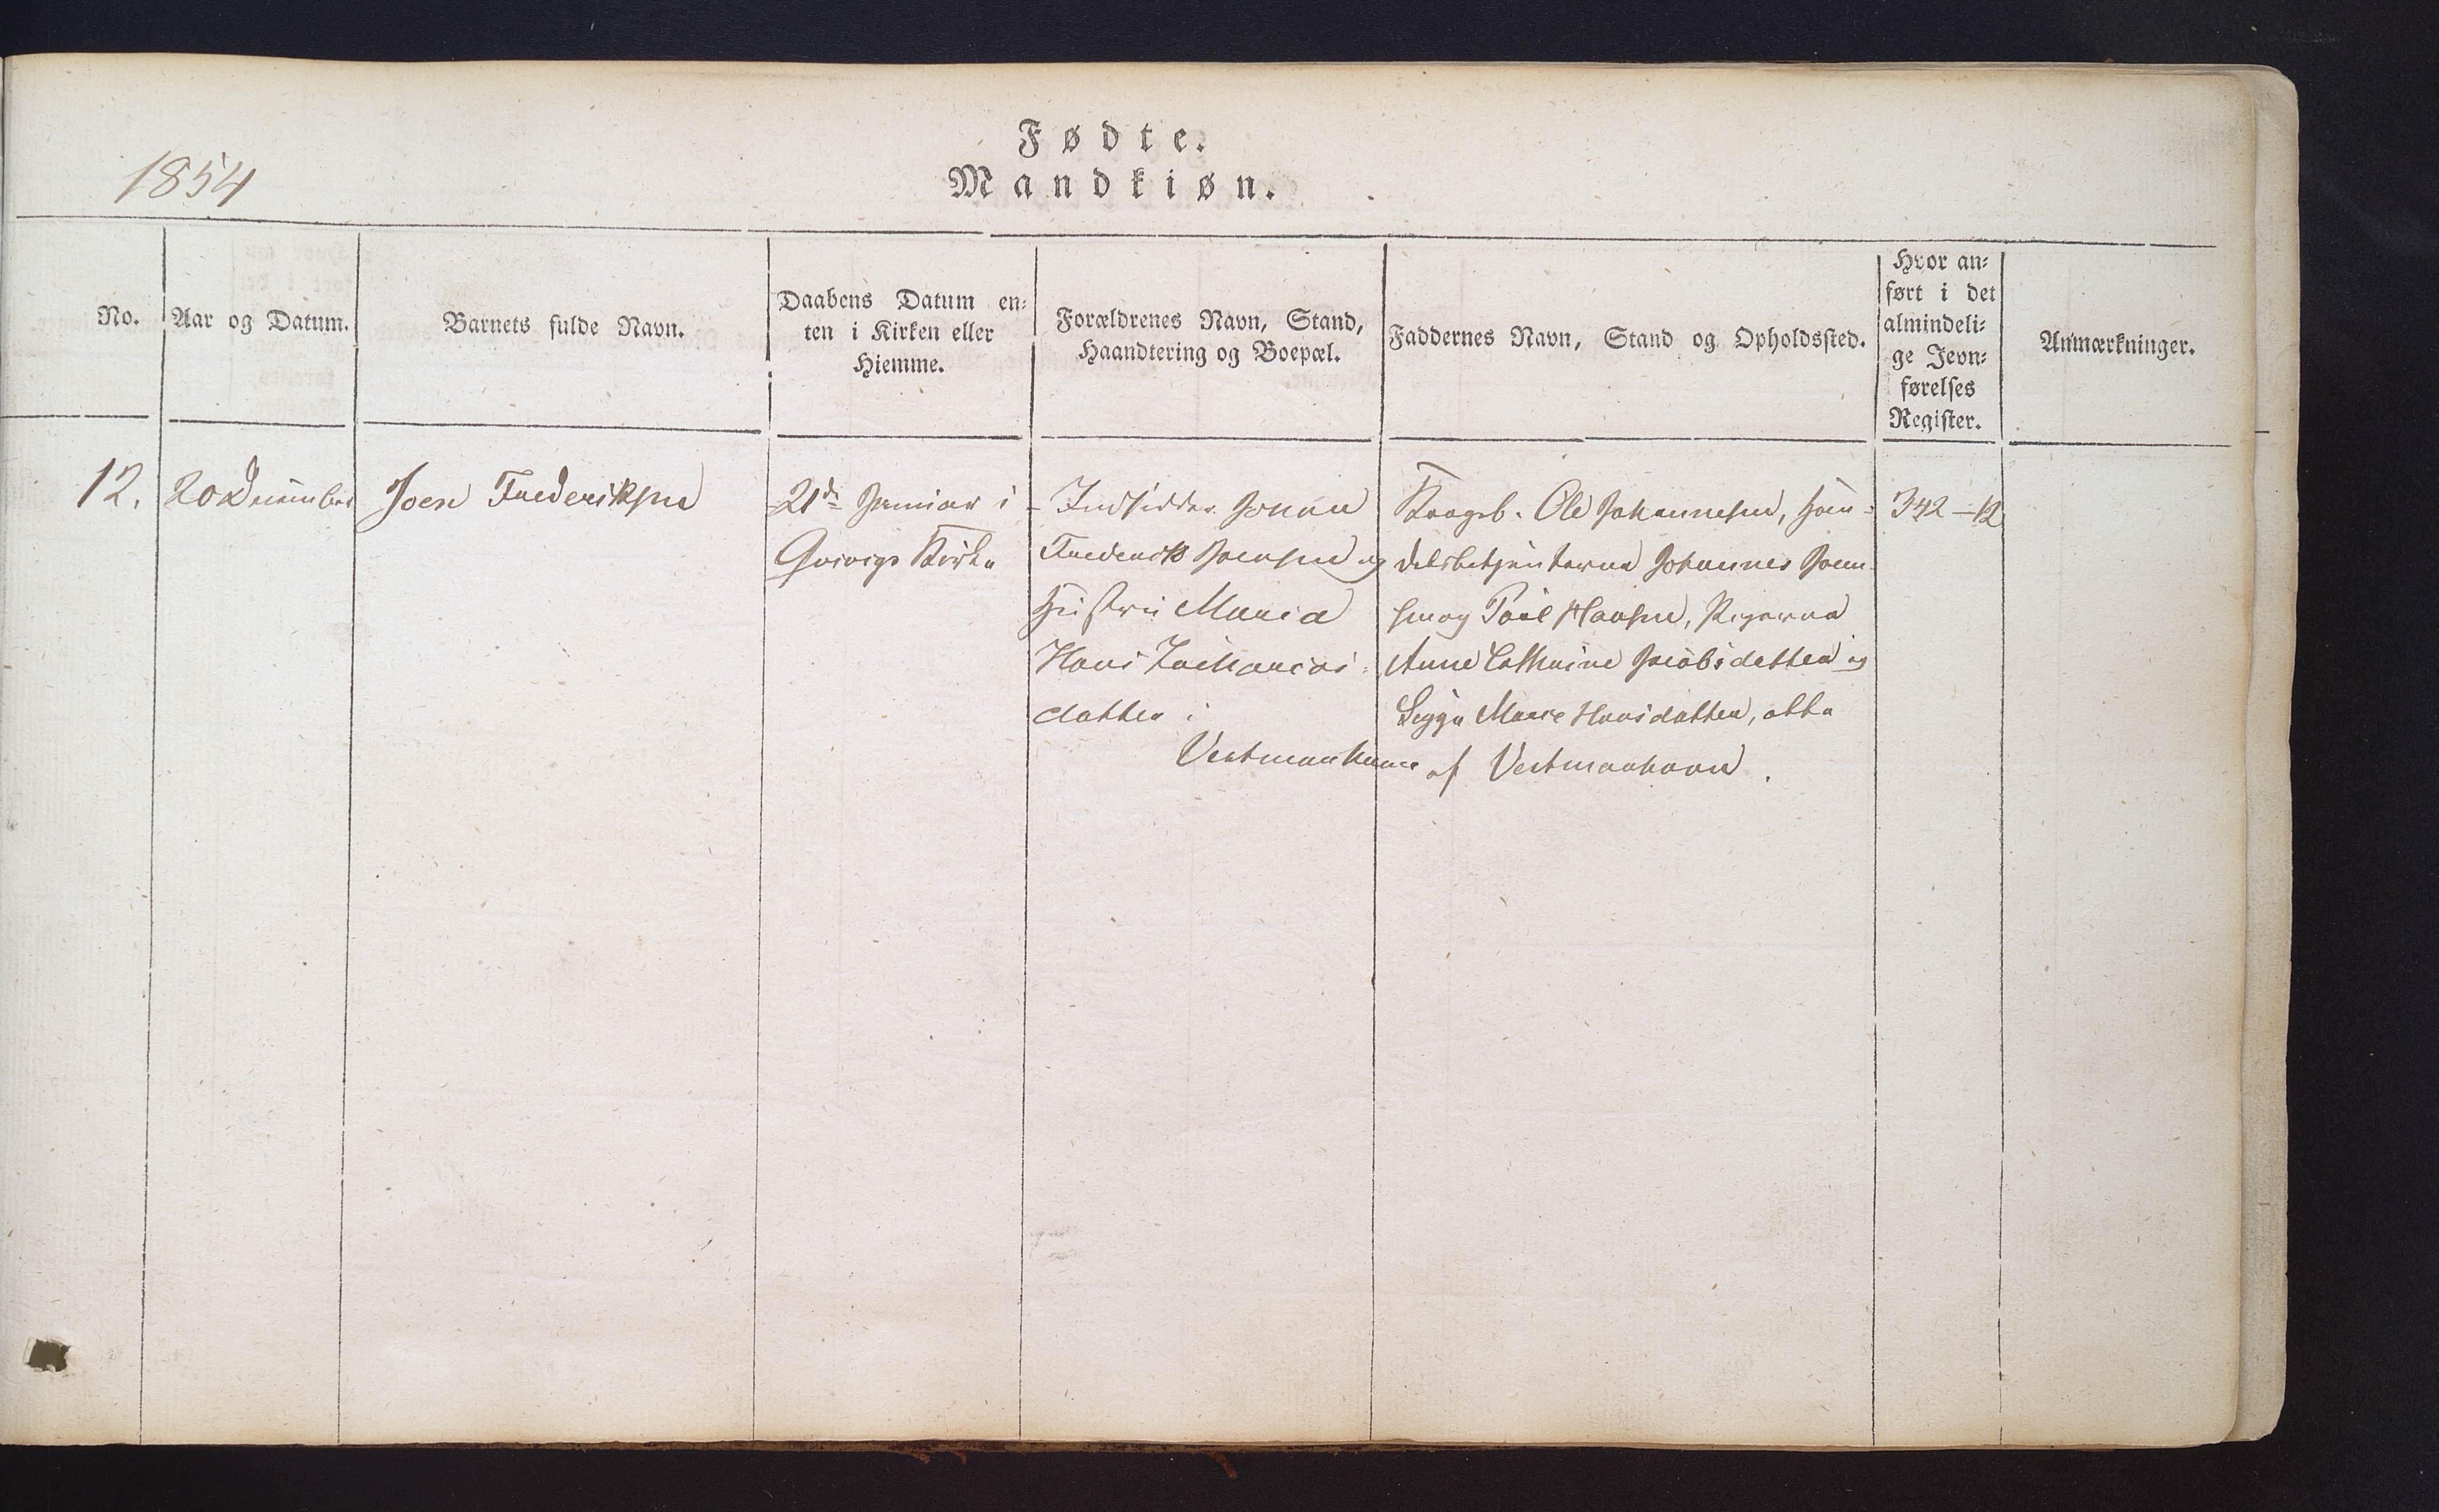 1854
Fødte.
Mandkiøn.
No.
Aar og Datum.
Barnets fulde Navn.
Daabens Datum en-
ten i Kirken eller
Hiemme.
Forældrenes Navn, Stand,
Haandtering og Boepæl.
Faddernes Navn, Stand og Opholdssted.
Hvor an-
ført i det
almindeli-
ge Jevn-
førelses
Register.
Anmærkninger.
12.
20 December
Joen Frederiksen
21de Januar i
Qvivigs Kirke
Indsidder
Frederik Joensen og
Hustru Maria
Hans Zacharias-
datter i
Vestmanhavn
Kongsb. Ole Johannesen, Han-
delsbetjenterne Johannes Joen-
sen og Poul Hansen, Pigerne
Anne Cathrine Jacobsdatter og
Marie Hansdatter, alle
af Vestmanhavn.
342-12